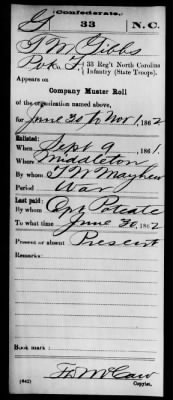 (Confederate.)
G 33 N.C.
T W Gibbs
Pvt. Co. F, 33 Reg't North Carolina
Infantry (State Troops).
Appears on
Company Muster Roll
of the organization named above,
for June 30 to Nov 1, 1862
Enlisted:
When Sept 9, 1861
Where Middleton
By whom T W Mayhew
Period War
Last paid:
By whom Capt Poteate
To what time June 30, 1862
Present or absent Present
Remarks:
Book mark:
(642) Copyist.